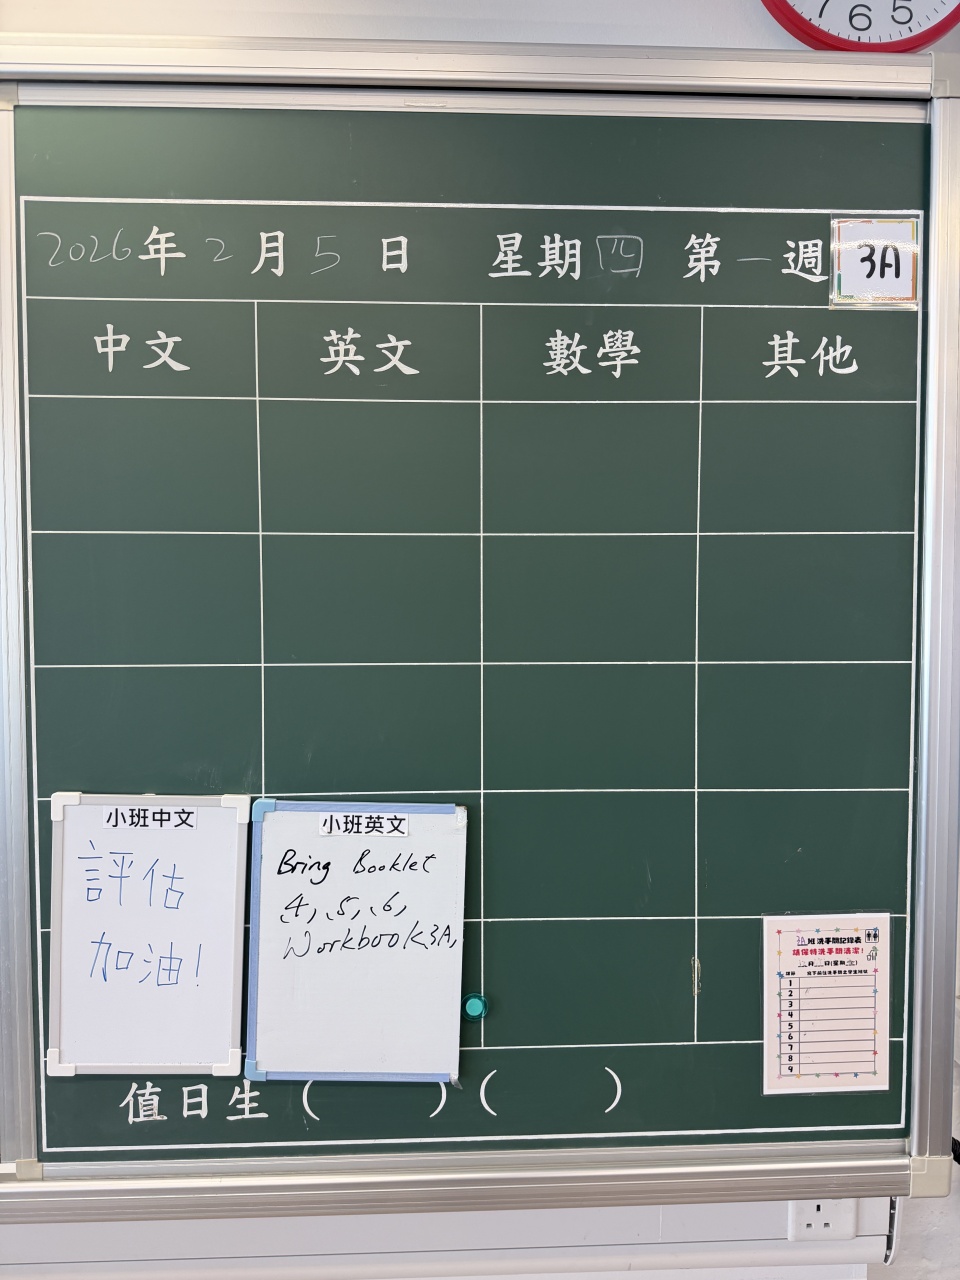 7 6 5
2026年2月5日 星期四 第一週 3A
中文 英文 數學 其他
小班中文
評估
加油!
小班英文
Bring Booklet
4, 5, 6,
Workbook 3A,
3A班洗手間記錄表
請保持洗手間清潔!
月 日(星期 )
1
2
3
4
5
6
7
8
9
值日生 ( ) ( )